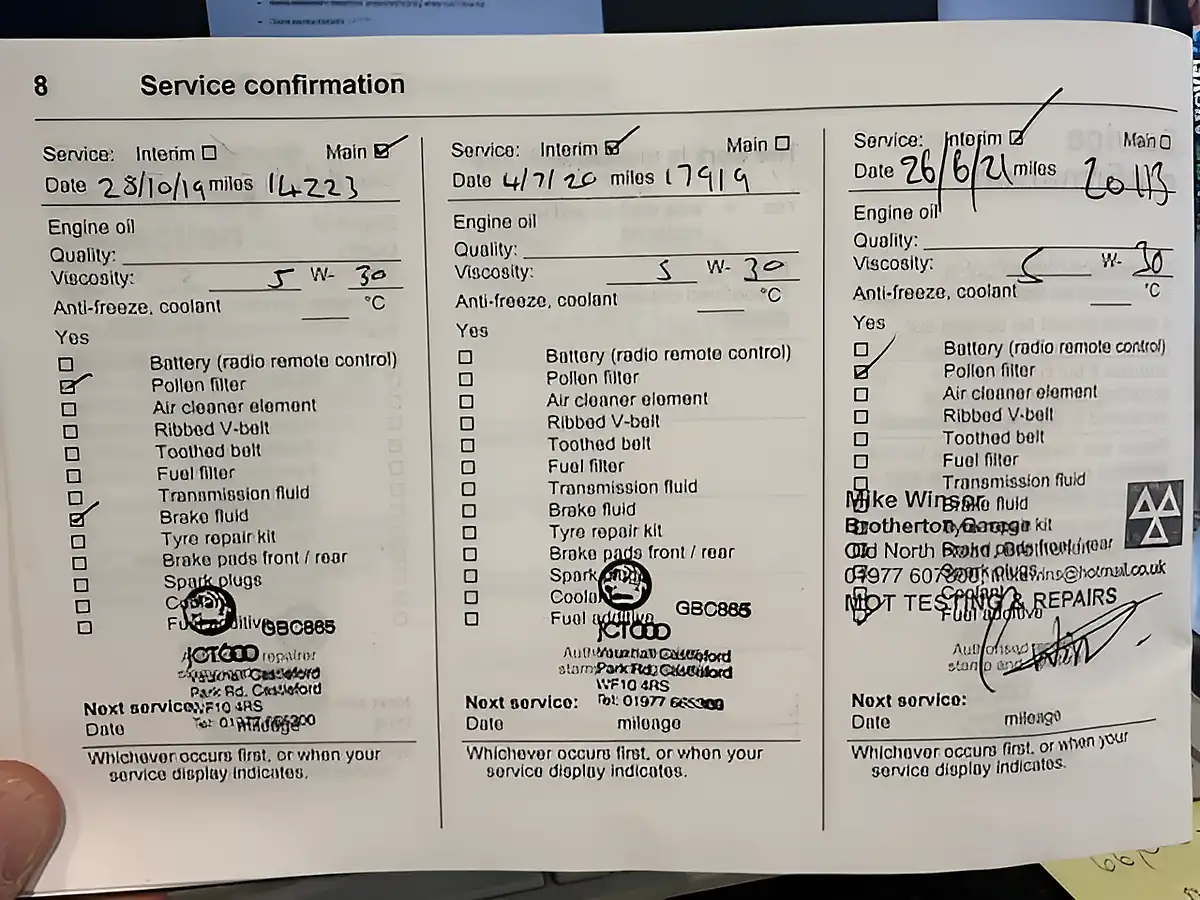 8 Service confirmation
Service: Interim Main
Date 28/10/19 miles 14223
Engine oil
Quality:
Viscosity: 5 W- 30
Anti-freeze, coolant °C
Yes
Battery (radio remote control)
Pollen filter
Air cleaner element
Ribbed V-belt
Toothed belt
Fuel filter
Transmission fluid
Brake fluid
Tyre repair kit
Brake pads front / rear
Spark plugs
Coolant
Fuel additive
GBC885
JCT600 repairer
Vauxhall Castleford
Park Rd. Castleford
WF10 4RS
Next service:
Tel: 01977
Date mileage
Whichever occurs first, or when your
service display indicates.
Service: Interim Main
Date 4/7/20 miles 17919
Engine oil
Quality:
Viscosity: 5 W- 30
Anti-freeze, coolant °C
Yes
Battery (radio remote control)
Pollen filter
Air cleaner element
Ribbed V-belt
Toothed belt
Fuel filter
Transmission fluid
Brake fluid
Tyre repair kit
Brake pads front / rear
Spark
Coolant
Fuel additive
GBC885
JCT600
Vauxhall Castleford
stamp Park Rd. Castleford
WF10 4RS
Next service: Tel: 01977
Date mileage
Whichever occurs first, or when your
service display indicates.
Service: Interim Main
Date 26/6/21 miles 20113
Engine oil
Quality:
Viscosity: 5 W- 30
Anti-freeze, coolant °C
Yes
Battery (radio remote control)
Pollen filter
Air cleaner element
Ribbed V-belt
Toothed belt
Fuel filter
Transmission fluid
Mike Winsor
Brake fluid
Brotherton Garage
Tyre repair kit
Old North Road,
Brake pads front / rear
Spark plugs
01977 @hotmail.co.uk
Coolant
MOT TESTING & REPAIRS
Fuel additive
Authorised
stamp and
Next service:
Date mileage
Whichever occurs first, or when your
service display indicates.